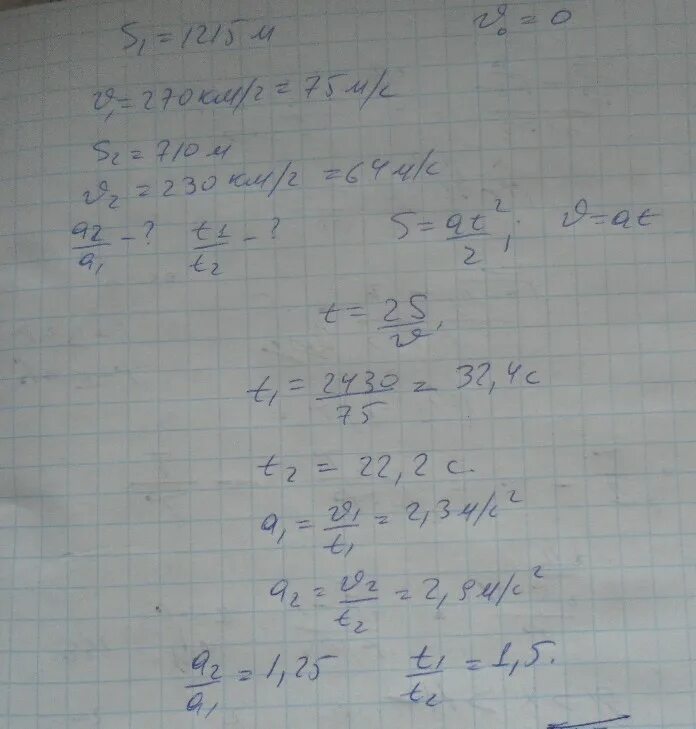 S₁ = 1215 м   ϑ₀ = 0
ϑ₁ = 270 км/г = 75 м/с
S₂ = 710 м
ϑ₂ = 230 км/г = 64 м/с
a₂/a₁ - ?   t₁/t₂ - ?   S = at²/2,   ϑ = at
t = 2S/ϑ,
t₁ = 2430/75 = 32,4 с
t₂ = 22,2 с.
a₁ = ϑ₁/t₁ = 2,3 м/с²
a₂ = ϑ₂/t₂ = 2,9 м/с²
a₂/a₁ = 1,25   t₁/t₂ = 1,5.